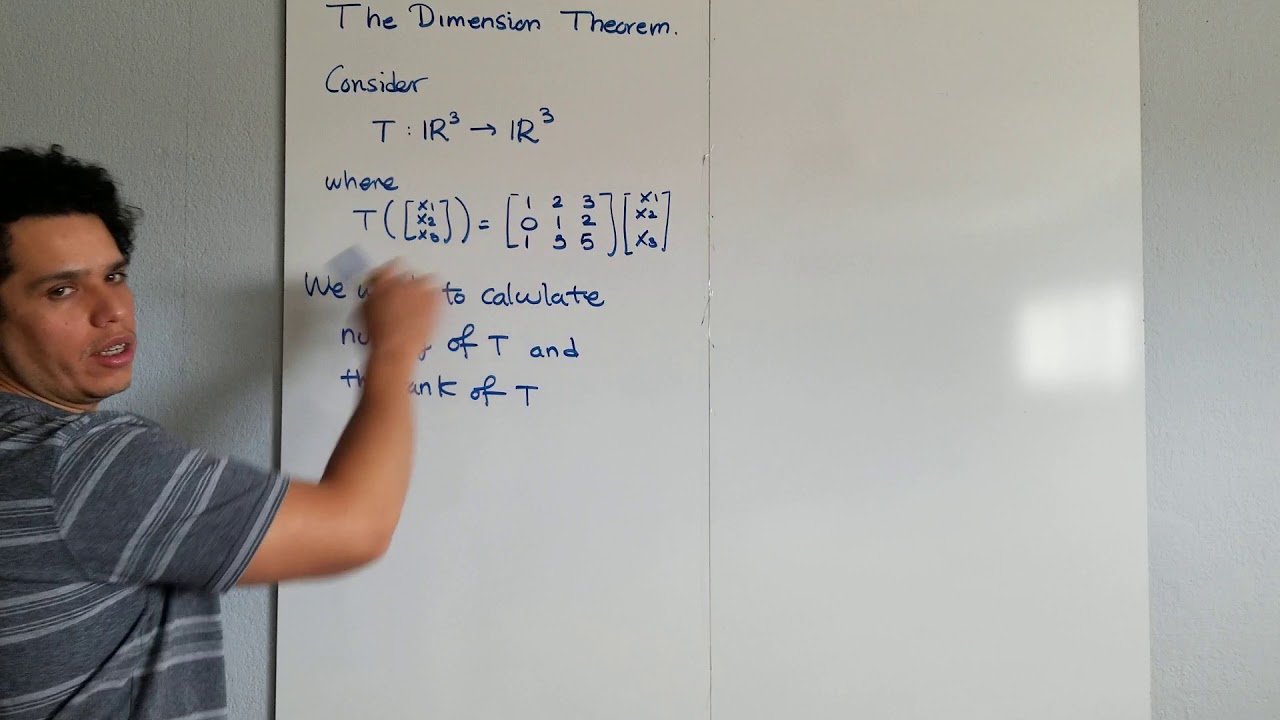 The Dimension Theorem.
Consider
T : ℝ³ → ℝ³
where
T([x₁ x₂ x₃]) = [1 2 3; 0 1 2; 1 3 5][x₁ x₂ x₃]
We to calculate
of T and
of T